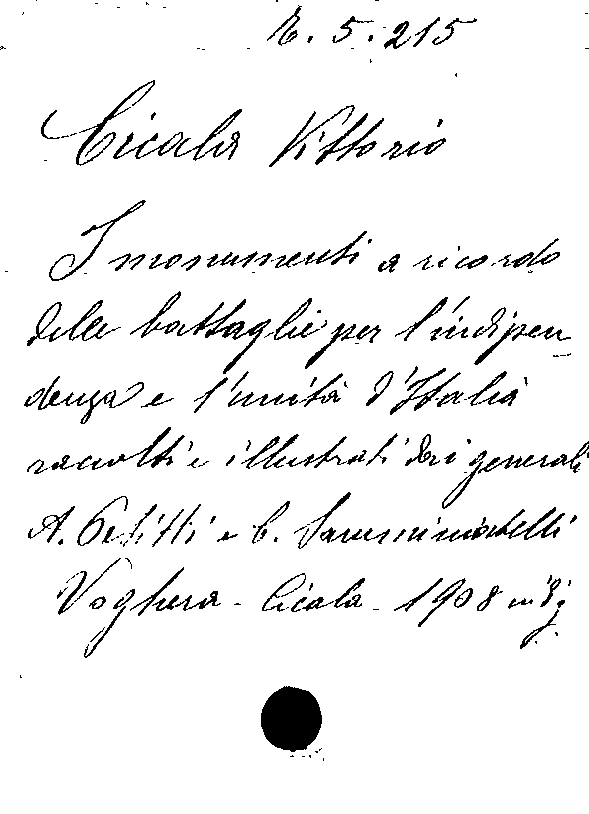 E. 5. 215
Cicala Vittorio
I monumenti a ricordo
delle battaglie per l'indipen
denza e l'unità d'Italia
raccolti e illustrati dai generali
A. Petitti e C. Sanminiatelli
Voghera - Cicala - 1908 in 8°